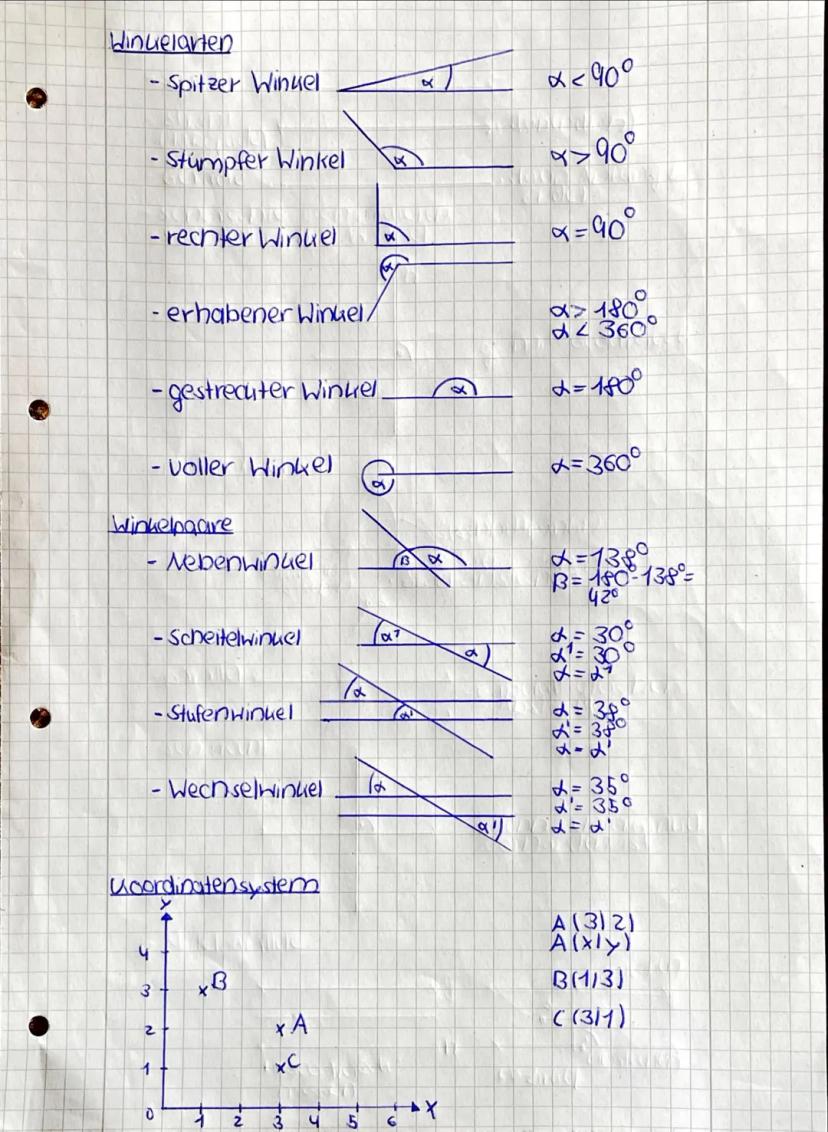 Winkelarten
- Spitzer Winkel α α < 90°
- Stumpfer Winkel α α > 90°
- rechter Winkel α α = 90°
α
- erhabener Winkel α > 180°
α < 360°
- gestreckter Winkel α α = 180°
- voller Winkel α α = 360°
Winkelpaare
- Nebenwinkel β α α = 138°
β = 180° - 138° =
42°
- Scheitelwinkel α' α α = 30°
α' = 30°
α = α'
- Stufenwinkel α α' α = 38°
α' = 38°
α = α'
- Wechselwinkel α α' α = 35°
α' = 35°
α = α'
Koordinatensystem
y
A (3|2)
A (x|y)
4
3 × B B (1|3)
2 × A C (3|1)
1 × C
0 1 2 3 4 5 6 X